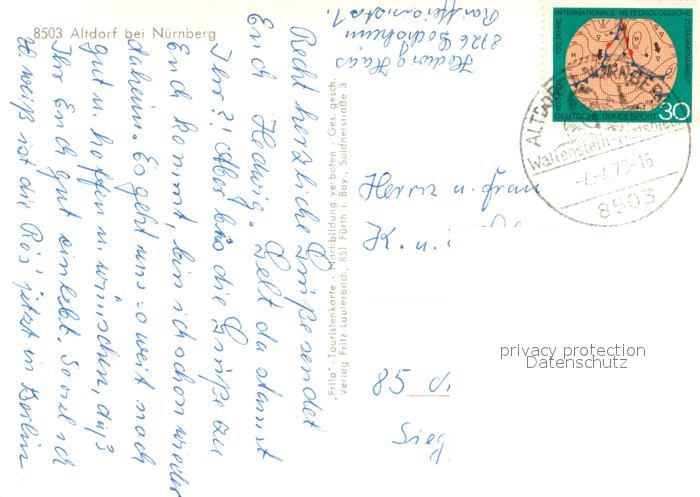 8503 Altdorf bei Nürnberg
Hedwig Haas
8726 Gochsheim
Recht herzliche Grüße sendet
Euch Hedwig. Gelt da staunt
Ihr?! Aber bis die Grüße zu
Euch kommt, bin ich schon wieder
daheim. Es geht uns so weit noch
gut u. hoffen u. wünschen, daß
Ihr Euch gut einlebt. Soviel ich
weiß ist die Ros' jetzt in Berlin
"Frila"-Touristenkarte · Nachbildung verboten · Ges. gesch.
Verlag Fritz Lauterbach, 851 Fürth i. Bay., Soldnerstraße 3
100 JAHRE INTERNATIONALE METEOROLOGISCHE ZUSAMMENARBEIT
DEUTSCHE BUNDESPOST 30
ALTDORF NÜRNBERG
Wallenstein-
8503
Herrn u. Frau
K. u.
85
privacy protection
Datenschutz